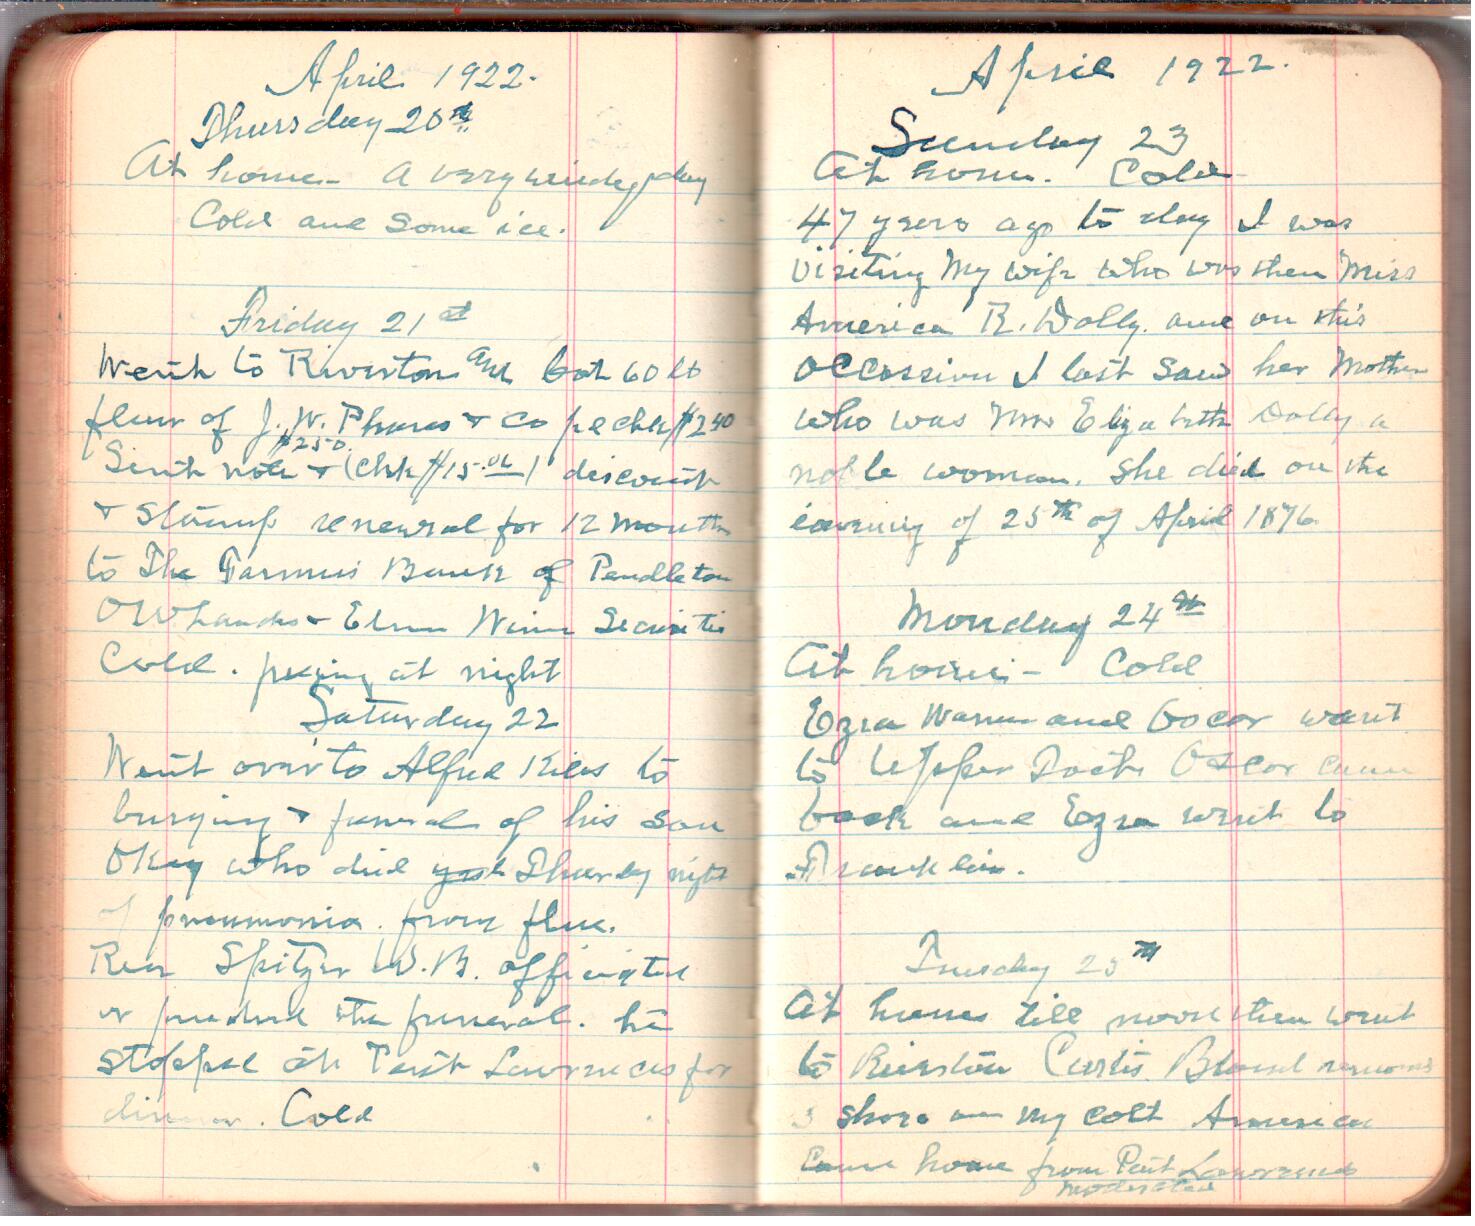 April 1922.
Thursday 20th
At home - A very windy day
Cold and some ice.
Friday 21st
Went to Riverton and bot 60 lb
flour of J. W. Phares & Co pd chk $2.40
$250
Sent note & (Chk $15.06) discount
& stamp renewal for 12 months
to The Farmers Bank of Pendleton
O W & Elmer Securities
Cold. at night
Saturday 22
Went over to Alfred Kiles to
burying & funeral of his son
Okey who died yest Thursdy night
of pneumonia from flue.
Rev Spitzer U. B. officiated
or preached the funeral. he
stopped at Lawrences for
dinner. Cold
April 1922.
Sunday 23
At home. Cold
47 years ago to day I was
visiting My wife who was then Miss
America R. Dolly. and on this
occassion I last saw her Mother
who was Mrs Elizabeth Dolly a
noble woman. She died on the
evening of 25th of April 1876
Monday 24th
At home - Cold
Ezra Warner and Oscar went
to Upper Tract Oscar came
back and Ezra went to
Franklin.
Tuesday 25th
At home till noon then went
to Riverton Curtis Bland removed
3 shoes on my colt America
Came home from Lawrences
moderated